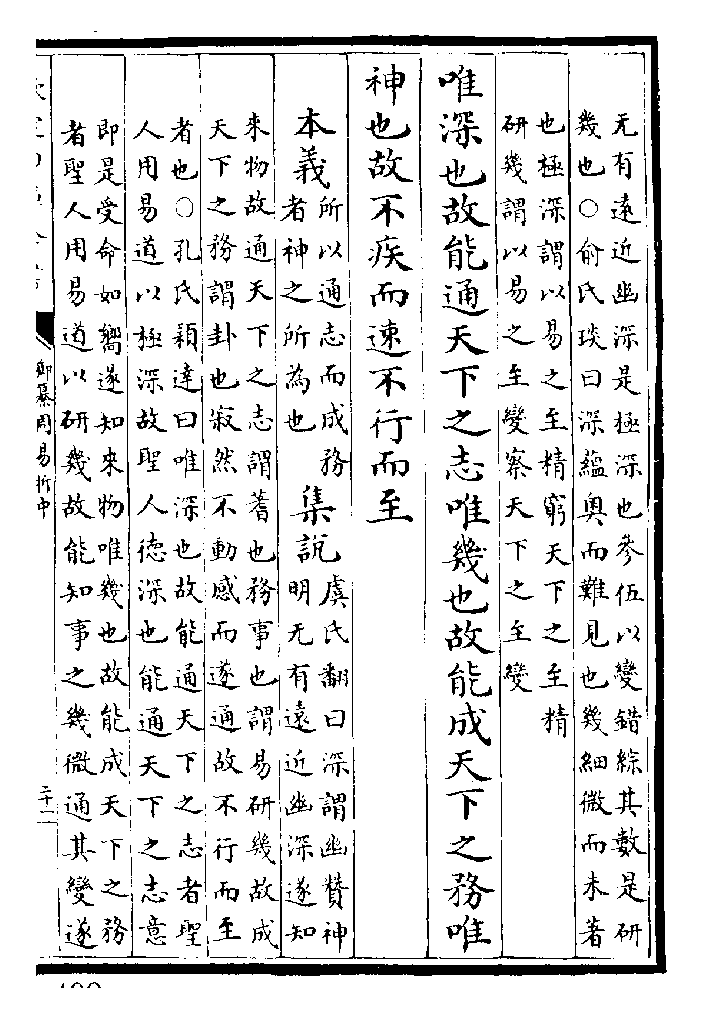 无有遠近幽深是極深也參伍以變錯綜其數是研
幾也○俞氏琰曰深蘊奥而難見也幾細微而未著
也極深謂以易之至精窮天下之至精
研幾謂以易之至變察天下之至變
唯深也故能通天下之志唯幾也故能成天下之務唯
神也故不疾而速不行而至
本義
所以通志而成務
者神之所為也
集說
虞氏翻曰深謂幽贊神
明无有遠近幽深遂知
來物故通天下之志謂蓍也務事也謂易研幾故成
天下之務謂卦也寂然不動感而遂通故不行而至
者也○孔氏穎達曰唯深也故能通天下之志者聖
人用易道以極深故聖人德深也能通天下之志意
即是受命如嚮遂知來物唯幾也故能成天下之務
者聖人用易道以研幾故能知事之幾微通其變遂
御纂周易折中
二十一